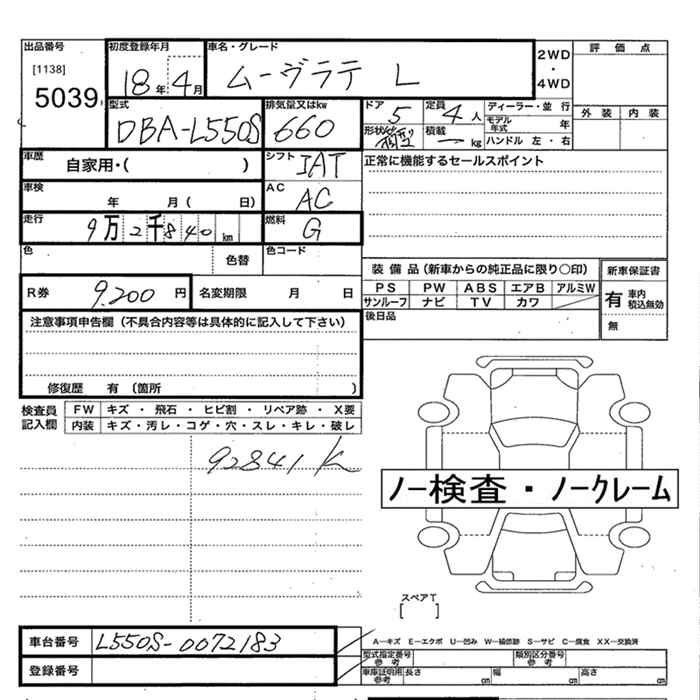 出品番号 初度登録年月 車名・グレード 2WD・4WD 評価点
[1138] 5039 18年4月 ムーヴラテ L
外装 内装
型式 排気量又はkw ドア 5 定員 4人 ディーラー・並行
DBA-L550S 660 形状 箱型 積載 ー kg モデル年式 年
ハンドル 左・右
車歴 自家用・( ) シフト IAT 正常に機能するセールスポイント
車検 年 月( 日) AC AC
走行 9万2千840km 燃料 G
色 色替 色コード
装備品(新車からの純正品に限り○印) 新車保証書
R券 9.200円 名変期限 月 日
PS PW ABS エアB アルミW 有 車内積込無効
サンルーフ ナビ TV カワ 無
後日品
注意事項申告欄(不具合内容等は具体的に記入して下さい)
修復歴 有(箇所 )
検査員記入欄 FW キズ・飛石・ヒビ割・リペア跡・X要
内装 キズ・汚レ・コゲ・穴・スレ・キレ・破レ
92841K
ノー検査・ノークレーム
スペアT
[ ]
車台番号 L550S-0072183
A―キズ E―エクボ U―凹み W―補修跡 S―サビ C―腐食 XX―交換済
登録番号
型式指定番号 参考 類別区分番号 参考
車庫証明用 参考 長さ cm 幅 cm 高さ cm